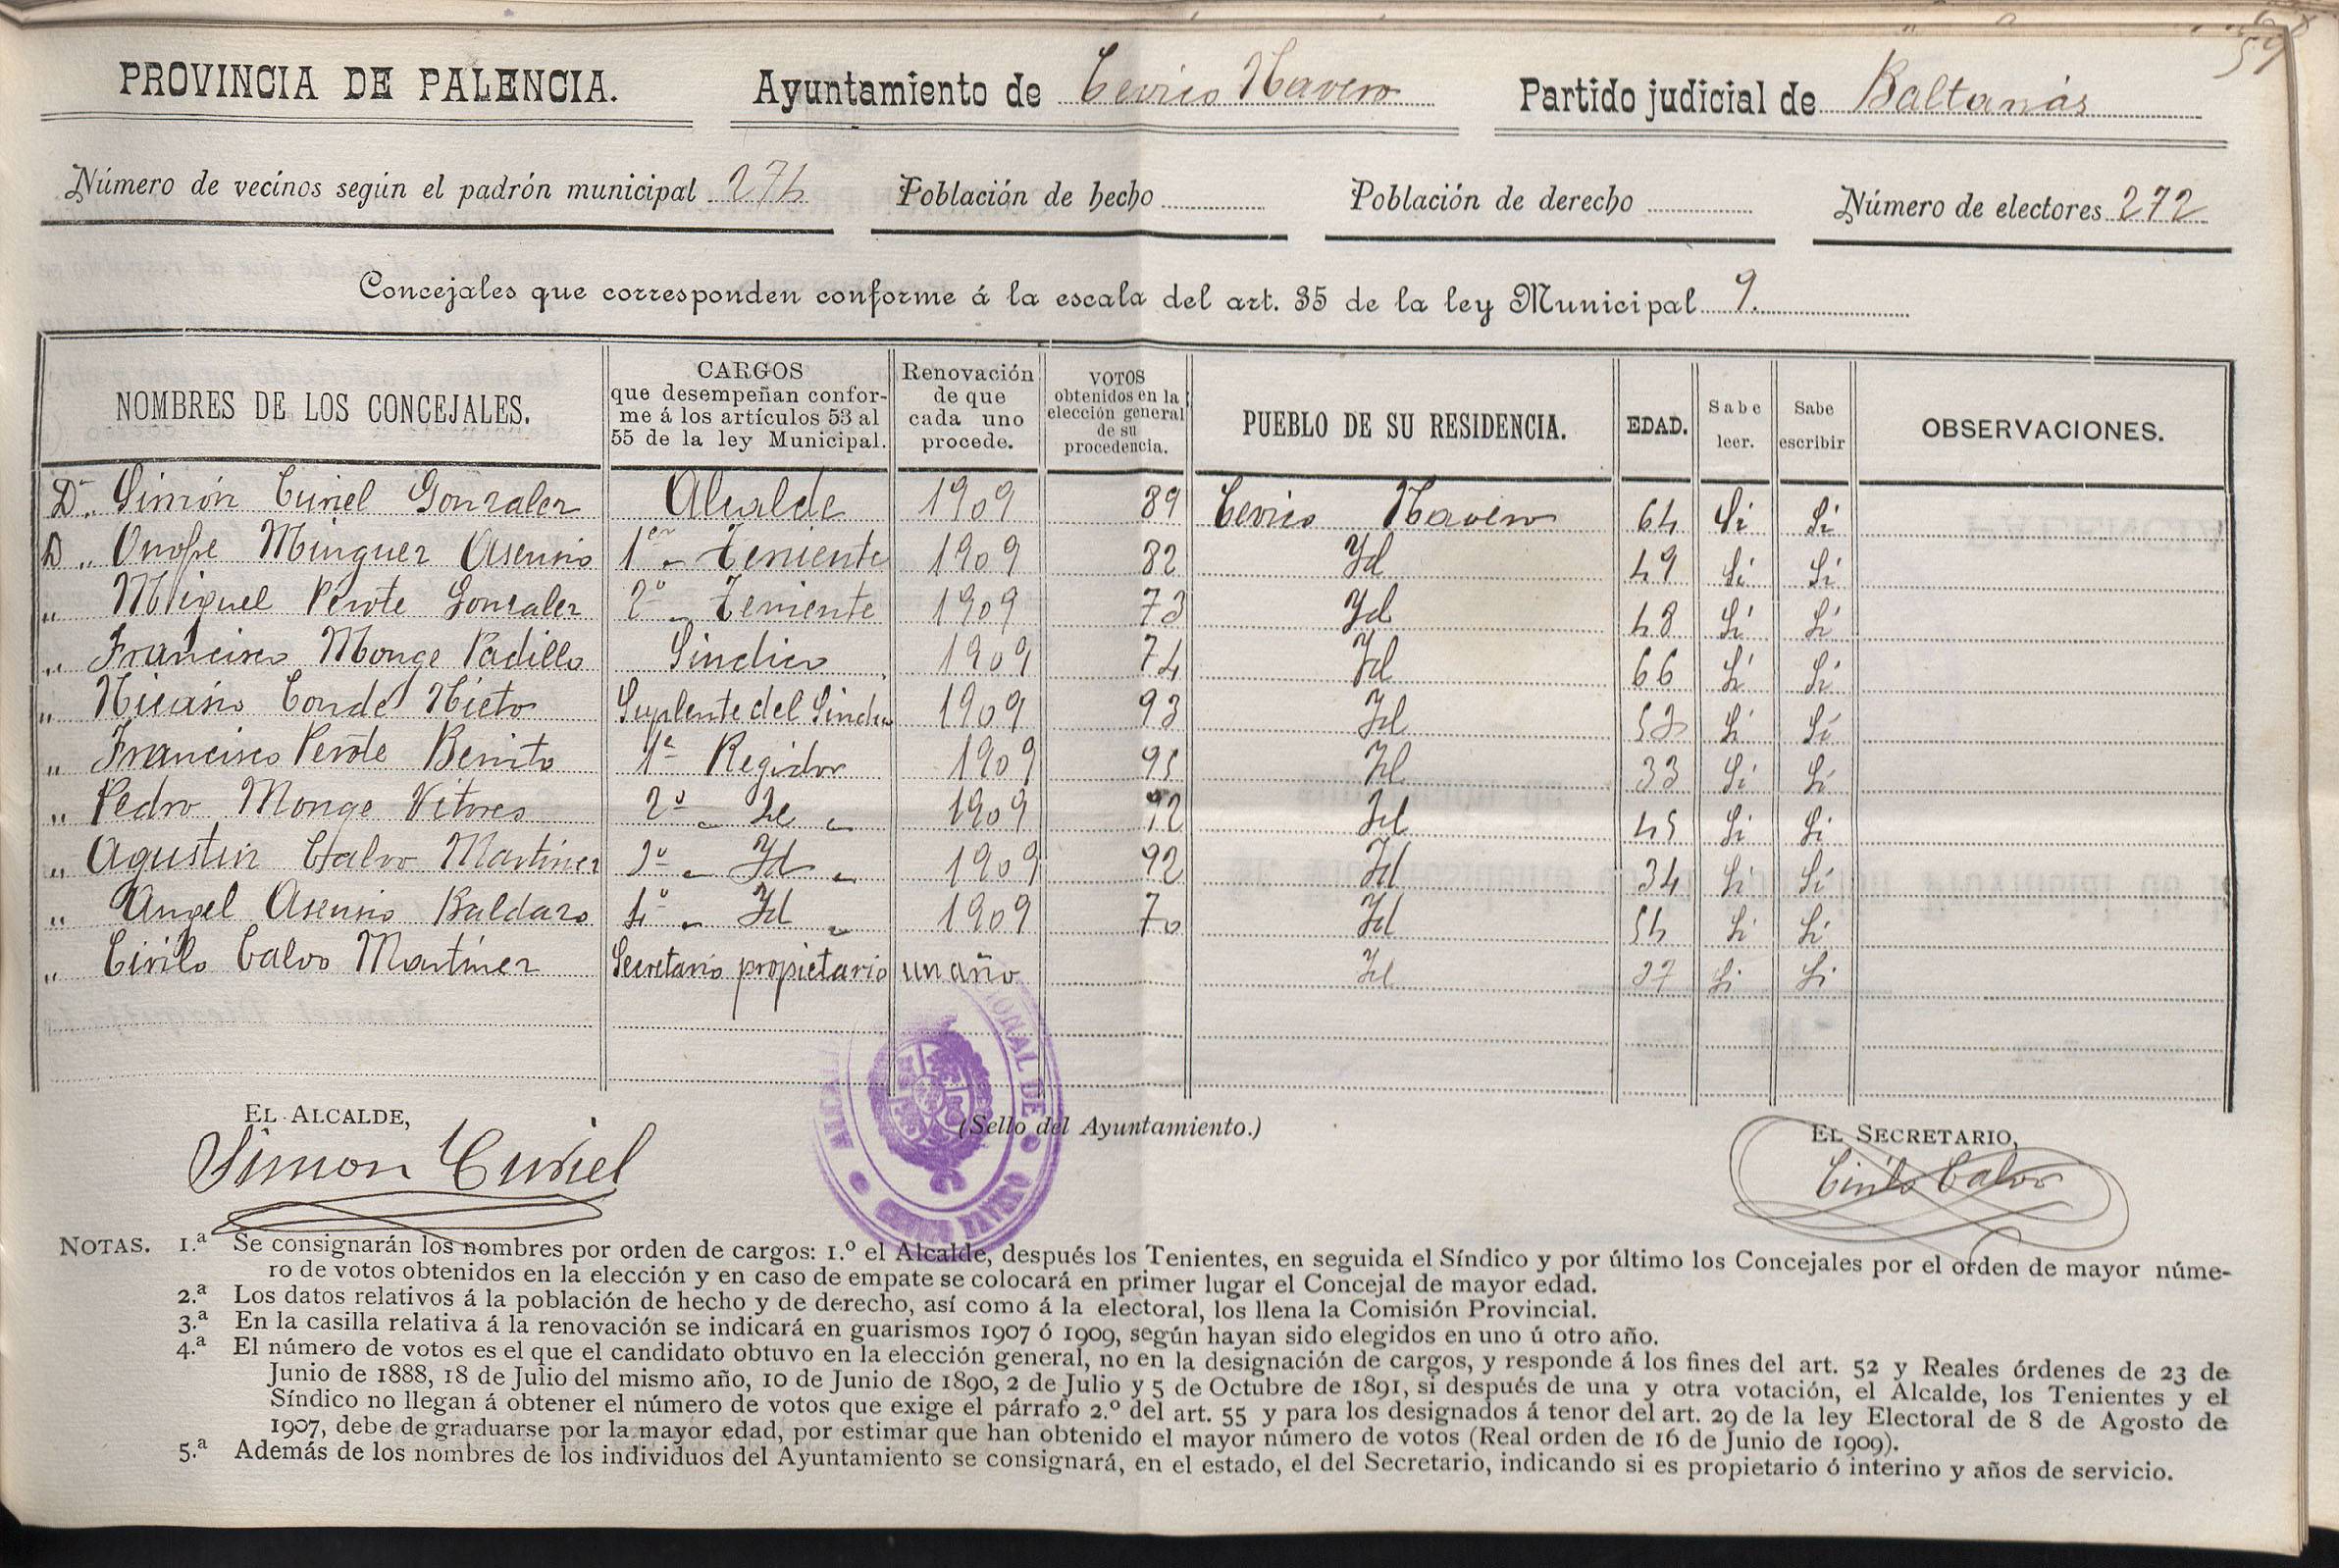 PROVINCIA DE PALENCIA. Ayuntamiento de Cevico Navero Partido judicial de Baltanás
Número de vecinos según el padrón municipal 274 Población de hecho Población de derecho Número de electores 272
Concejales que corresponden conforme á la escala del art. 35 de la ley Municipal 9.
NOMBRES DE LOS CONCEJALES. CARGOS que desempeñan conforme á los artículos 53 al 55 de la ley Municipal. Renovación de que cada uno procede. VOTOS obtenidos en la elección general de su procedencia. PUEBLO DE SU RESIDENCIA. EDAD. Sabe leer. Sabe escribir OBSERVACIONES.
Dn. Simón Curiel Gonzalez Alcalde 1909 89 Cevico Navero 64 Si Si
D. „ Onofre Minguez Asensio 1er „ Teniente 1909 82 Id 49 Si Si
„ Miguel Perote Gonzalez 2º „ Teniente 1909 73 Id 48 Si Si
„ Francisco Monge Padillo Sindico 1909 74 Id 66 Si Si
„ Nicasio Conde Nieto Suplente del Sindico 1909 93 Id Si Si
„ Francisco Perote Benito 1º Regidor 1909 95 Id 33 Si Si
„ Pedro Monge Vitores 2º „ Id „ 1909 92 Id 45 Si Si
„ Agustin Calvo Martinez 3º „ Id „ 1909 92 Id 34 Si Si
„ Angel Asensio Baldazo 4º „ Id „ 1909 70 Id 54 Si Si
„ Cirilo Calvo Martinez Secretario propietario un año Id 37 Si Si
EL ALCALDE,
Simon Curiel
(Sello del Ayuntamiento.)
EL SECRETARIO,
Cirilo Calvo
NOTAS. 1.ª Se consignarán los nombres por orden de cargos: 1.º el Alcalde, después los Tenientes, en seguida el Síndico y por último los Concejales por el orden de mayor núme-
ro de votos obtenidos en la elección y en caso de empate se colocará en primer lugar el Concejal de mayor edad.
2.ª Los datos relativos á la población de hecho y de derecho, así como á la electoral, los llena la Comisión Provincial.
3.ª En la casilla relativa á la renovación se indicará en guarismos 1907 ó 1909, según hayan sido elegidos en uno ú otro año.
4.ª El número de votos es el que el candidato obtuvo en la elección general, no en la designación de cargos, y responde á los fines del art. 52 y Reales órdenes de 23 de
Junio de 1888, 18 de Julio del mismo año, 10 de Junio de 1890, 2 de Julio y 5 de Octubre de 1891, si después de una y otra votación, el Alcalde, los Tenientes y el
Síndico no llegan á obtener el número de votos que exige el párrafo 2.º del art. 55 y para los designados á tenor del art. 29 de la ley Electoral de 8 de Agosto de
1907, debe de graduarse por la mayor edad, por estimar que han obtenido el mayor número de votos (Real orden de 16 de Junio de 1909).
5.ª Además de los nombres de los individuos del Ayuntamiento se consignará, en el estado, el del Secretario, indicando si es propietario ó interino y años de servicio.